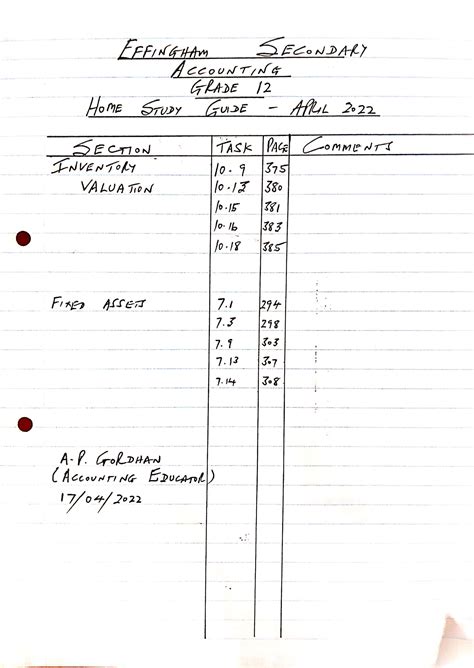 EFFINGHAM SECONDARY
ACCOUNTING
GRADE 12
HOME STUDY GUIDE - APRIL 2022
SECTION TASK PAGE COMMENTS
INVENTORY 10.9 375
VALUATION 10.13 380
10.15 381
10.16 383
10.18 385
FIXED ASSETS 7.1 294
7.3 298
7.9 303
7.13 307
7.14 308
A.P. GORDHAN
(ACCOUNTING EDUCATOR)
17/04/2022